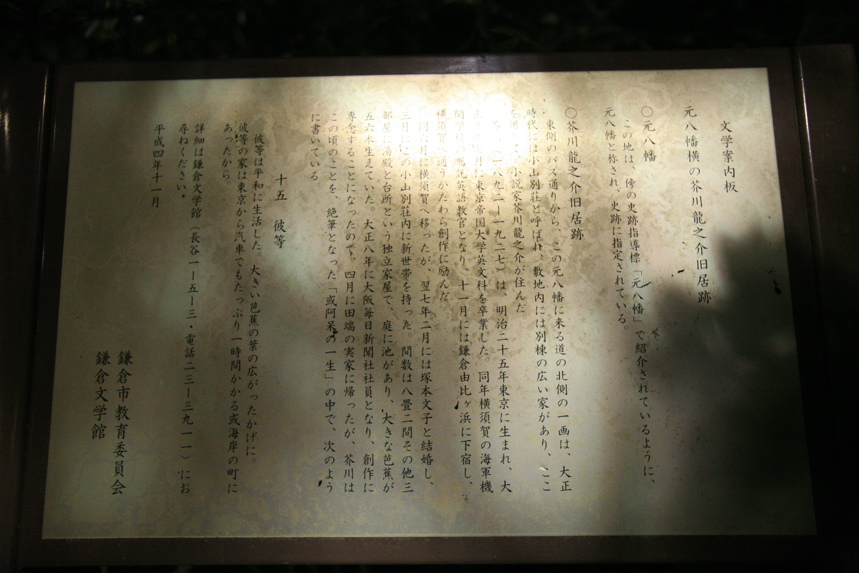 文学案内板
元八幡横の芥川龍之介旧居跡
○元八幡
この地は、傍の史跡指導標「元八幡」で紹介されているように、
元八幡と称され、史跡に指定されている。
○芥川龍之介旧居跡
東側のバス通りから、この元八幡に来る道の北側の一画は、大正
時代には小山別荘と呼ばれ、敷地内には別棟の広い家があり、ここ
に小説家芥川龍之介が住んだ。
芥川(一八九二ー一九二七)は、明治二十五年東京に生まれ、大
正 年 月に東京帝国大学英文科を卒業した。同年横須賀の海軍機
関学校の嘱託英語教官となり、十一月には鎌倉由比ヶ浜に下宿し、
横須賀へ通うかたわら創作に励んだ。
同 年 月に横須賀へ移ったが、翌七年二月には塚本文子と結婚し、
三月 この小山別荘内に新世帯を持った。間数は八畳二間その他三
部屋に湯殿と台所という独立家屋で、庭に池があり、大きな芭蕉が
五六本生えていた。大正八年に大阪毎日新聞社社員となり、創作に
専念することになったので、四月に田端の実家に帰ったが、芥川は
この頃のことを、絶筆となった「或阿呆の一生」の中で、次のよう
に書いている
十五 彼等
彼等は平和に生活した。大きい芭蕉の葉の広がったかげに。
彼等の家は東京から汽車でもたっぷり一時間かかる或海岸の町に
あったから。
詳細は鎌倉文学館(長谷一ー五ー三・電話二三ー三九一一)にお
尋ねください。
平成四年十一月
鎌倉市教育委員会
鎌倉文学館